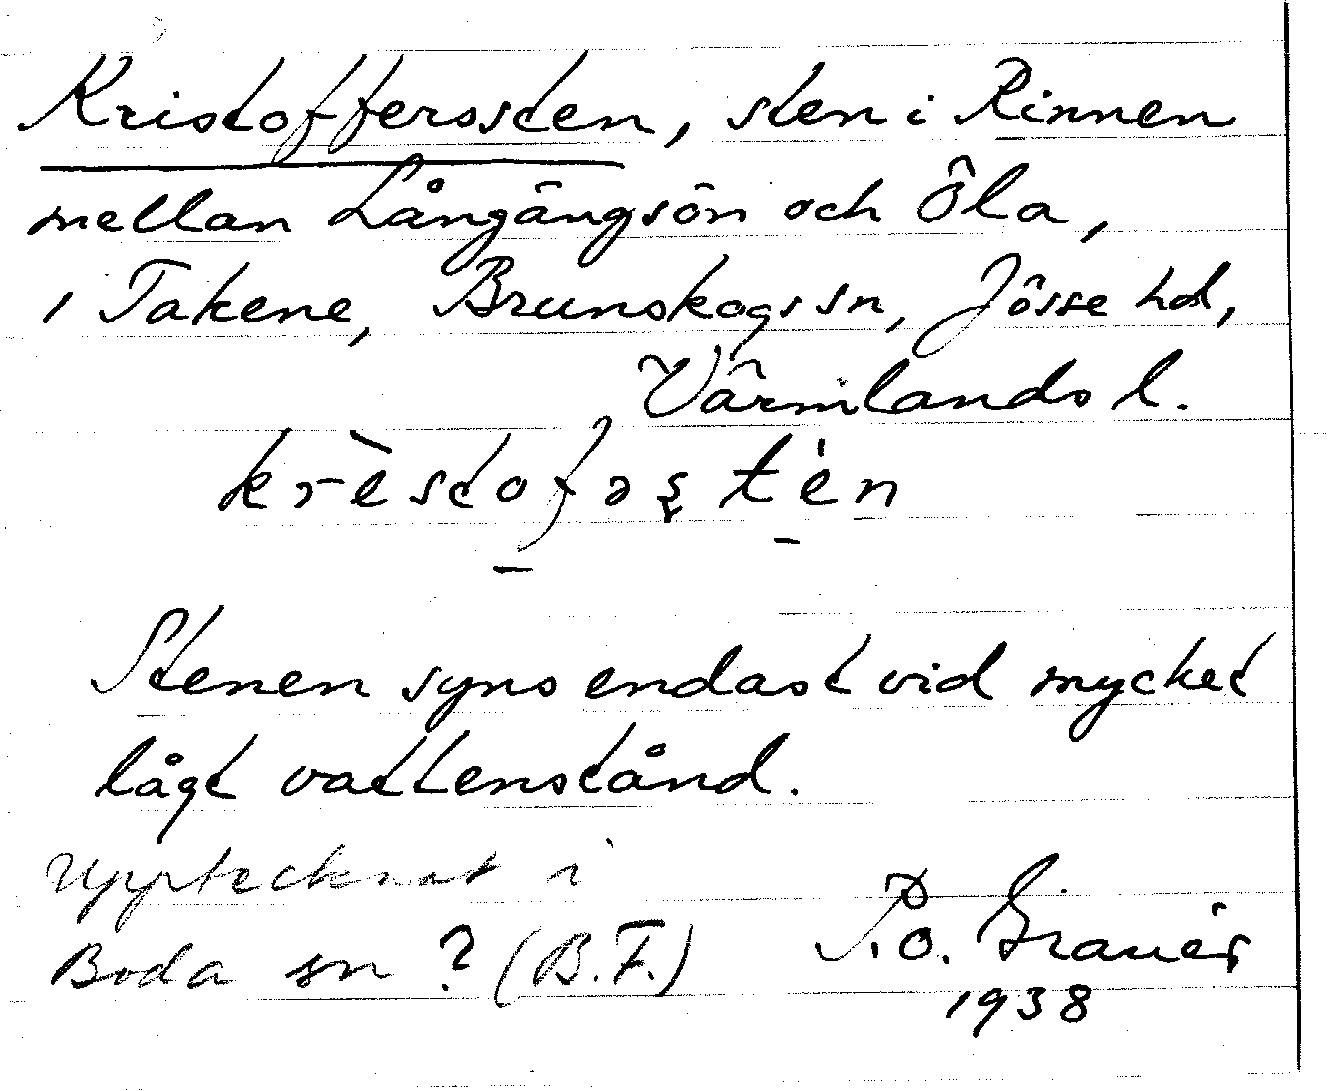 Kristoffersten, sten i Rinnen
mellan Långängsön och Öla,
i Takene, Brunskogs sn, Jösse hd,
Värmlands l.
krèstofəş tén
Stenen syns endast vid mycket
lågt vattenstånd.
Upptecknat i
Boda sn ? (B.F.)
P.O. Graner
1938